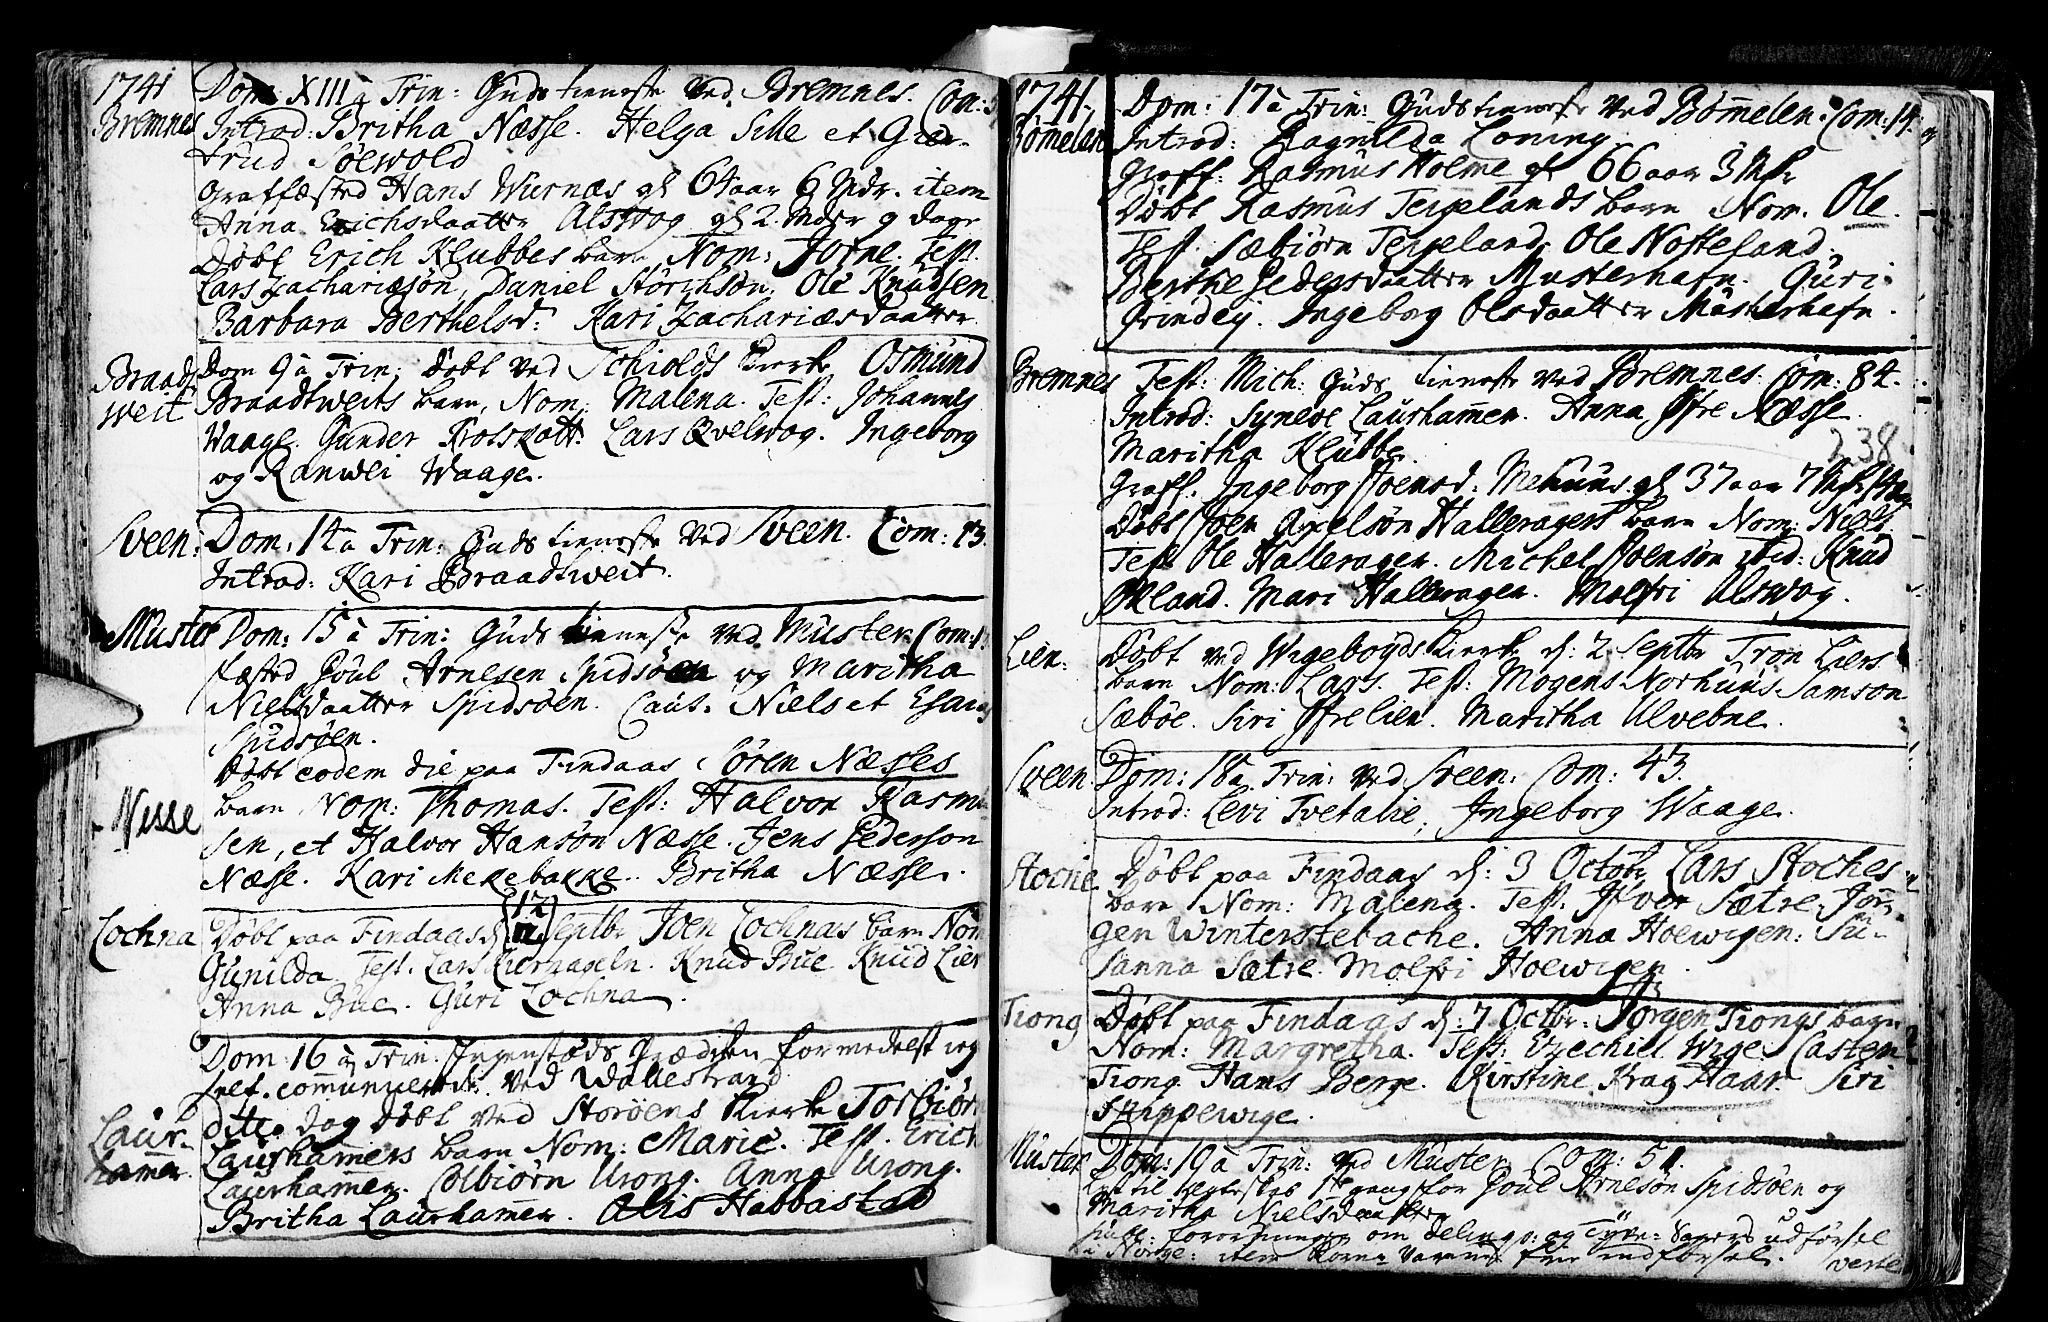 1741
Bremnes
Dom: XIII à Trin: Guds tieneste ved Bremnes. Com:
Introd: Britha Næsse. Helga Sille et Giær-
trud Söewold
Graffæsted Hans Wurnæs gl 64 aar 6 Mdr. item
Anna Erichsdaatter Alswog gl 2. Mdr 9 dage
Döbt Erich Klubbes barn Nom: Johne. Test.
Lars Zachariæsön, Daniel Störchsön, Ole Knudsen
Barbara Berthelsd: Kari Zachariæsdaatter
Braadt
weit
Dom 9 à Trin: Döbt ved Schiolds Kierke Osmund
Braadtweits barn, Nom: Malena. Test: Johannes
Waage. Gunder Lars Qvelwog. Ingeborg
og Ranwei Waage.
Sveen:
Dom: 14 à Trin: Guds tieneste ved Sveen. Com: 43.
Introd: Kari Braadtweit.
Muster
Dom: 15 à Trin: Guds tieneste ved Muster. Com:
fæsted Poul Arnesen Spidsöen og Maritha
Nielsdaatter Spidsöen. Caut. Niels et Esaias
Spidsöen.
Döbt eodem die paa Findaas Sören Næsses
Nesse
barn Nom: Thomas. Test: Halvor Rasmu
sen, et Halvor Hansön Næsse. Jens Pederson
Næsse. Kari Mekebakke. Britha Næsse.
Lochna
Döbt paa Findaas d: 12 Septbr Joen Lochnas barn Nom
Gunilda Test. Lars Kiernageln. Knud Bue Knud Lier
Anna Bue. Guri Lochna.
Dom: 16 à Trin: Ingenstæds Prædiken formedelst ieg
self communicerede ved Wallestrand
Laur-
hamer
dito dag döbt ved Storöens Kierke Torbiörn
Laurhamers barn Nom: Marie. Test. Erich
Laurhamer. Colbiörn Urong. Anna Urong.
Britha Laurhamer. Alis Habbastad
1741.
Bömelen
Dom: 17 à Trin: Guds tieneste ved Bömelen. Com: 14.
Introd: Ragnilda Loning
Graff: Rasmus Holme gl 66 aar 3 Mdr
Döbt Rasmus Tergelands barn Nom. Ole.
Test. Sæbiörn Tergeland, Ole Notteland.
Berthe Pedersdaatter Musterhafn. Guri
Grindey. Ingeborg Olsdaatter Musterhafn.
Bremnes
Test: Mich: Guds tieneste ved Bremnes. Com: 84.
Introd: Syneve Laurhamer. Anna Næsse
Maritha Klubbe.
238
Graff. Ingeborg Joensd: Mehuus gl 37 aar
Döbt Joen Axelsön Halleragers barn Nom: Niels.
Test. Ole Halleragen. Michel Joensön ibid: Knud
Økland. Mari Halleragen. Molfri Alswog.
Lien.
Döbt ved Wigeboyds Kierke d: 2 Septbr Tron Liers
barn Nom: Lars. Test: Mogens Norhuus Samson
Sæböe. Siri Lien. Maritha Ulvebne.
Sveen.
Dom: 18 à Trin: ved Sveen. Com: 43.
Introd: Levi Tvetalie, Ingeborg Waage.
Stoche
Döbt paa Findaas d: 3 Octobr Lars Stoches
barn Nom: Malena. Test. Ifver Sætre. Jör-
gen Winterstebache. Anna Hoewigen: Su-
sanna Sætre. Molfri Hoewigen.
Tiong
Döbt paa Findaas d: 7 Octbr. Jörgen Tiongs barn
Nom: Margretha. Test: Ezechiel Wige. Casten
Tiong Hans Berge. Kirstine Krag Haar Siri
Skippewige.
Muster
Dom: 19 à Trin: ved Muster Com: 51.
Lyst til Egteskab 1te gang for Poul Arnesön Spidsöen og
Maritha Nielsdaatter
Publ: forordningen om Delings: og Tyve: Sagers udförsel
i Norge: item Korn-Varenes frie indförsel. verte